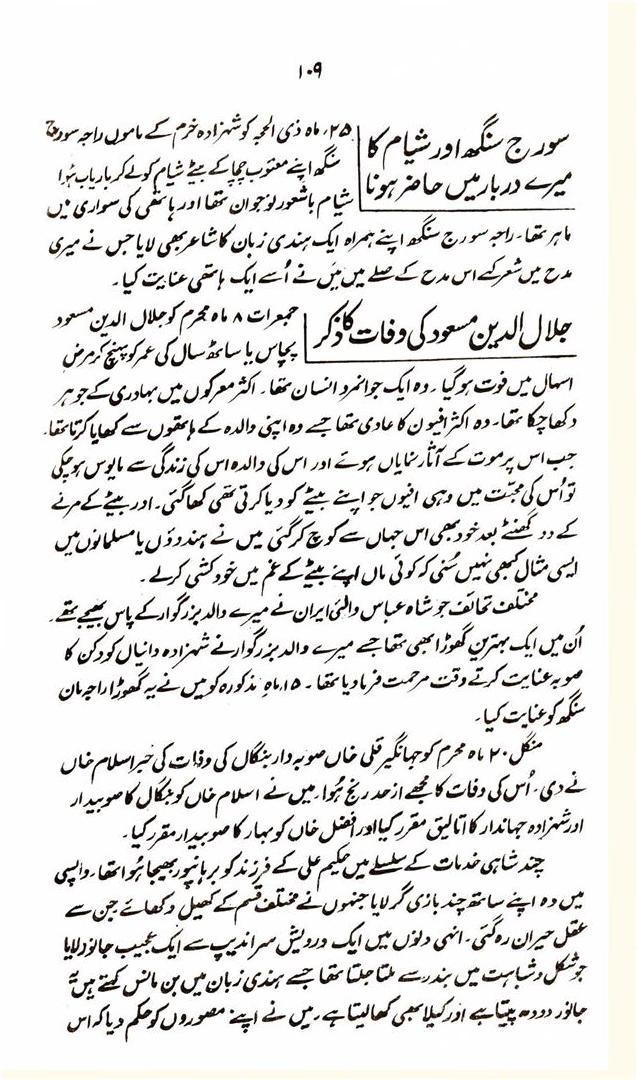 ۱۰۹
سورج سنگھ اور شیام کا
میرے دربار میں حاضر ہونا
۲۵، ماہ ذی الحجہ کو شہزادہ خرم کے ماموں راجہ سورج
سنگھ اپنے معتوب چچا کے بیٹے شیام کو لے کر باریاب ہُوا
شیام باشعور نوجوان تھا اور ہاتھی کی سواری میں
ماہر تھا۔ راجہ سورج سنگھ اپنے ہمراہ ایک ہندی زبان کا شاعر بھی لایا جس نے میری
مدح میں شعر کہے اس مدح کے صلے میں میں نے اُسے ایک ہاتھی عنایت کیا۔
جلال الدین مسعود کی وفات کا ذکر
جمعرات ۸ ماہ محرم کو جلال الدین مسعود
پچاس یا ساٹھ سال کی عمر کو پہنچ کر مرض
اسہال میں فوت ہو گیا۔ وہ ایک جوانمرد انسان تھا۔ اکثر معرکوں میں بہادری کے جوہر
دکھا چکا تھا۔ وہ اکثر افیون کا عادی تھا جسے وہ اپنی والدہ کے ہاتھوں سے کھایا کرتا تھا۔
جب اس پر موت کے آثار نمایاں ہوئے اور اس کی والدہ اس کی زندگی سے مایوس ہو چکی
تو اُس کی محبّت میں وہی افیون جو اپنے بیٹے کو دیا کرتی تھی کھا گئی۔ اور بیٹے کے مرنے
کے دو گھنٹے بعد خود بھی اس جہاں سے کوچ کر گئی میں نے ہندوؤں یا مسلمانوں میں
ایسی مثال کبھی نہیں سُنی کہ کوئی ماں اپنے بیٹے کے غم میں خودکشی کرلے۔
مختلف تحائف جو شاہ عباس والئی ایران نے میرے والد بزرگوار کے پاس بھیجے تھے۔
اُن میں ایک بہترین گھوڑا بھی تھا جسے میرے والد بزرگوار نے شہزادہ دانیال کو دکن کا
صوبہ عنایت کرتے وقت مرحمت فرما دیا تھا۔ ۱۵، ماہ مذکورہ کو میں نے یہ گھوڑا راجہ مان
سنگھ کو عنایت کیا۔
منگل ۲۰ ماہ محرم کو جہانگیر قلی خاں صوبہ دار بنگال کی وفات کی خبر اسلام خاں
نے دی۔ اُس کی وفات کا مجھے از حد رنج ہُوا۔ میں نے اسلام خاں کو بنگال کا صوبیدار
اور شہزادہ جہاندار کا اتالیق مقرر کیا اور افضل خاں کو بہار کا صوبیدار مقرر کیا۔
چند شاہی خدمات کے سلسلے میں حکیم علی کے فرزند کو برہانپور بھیجا ہُوا تھا۔ واپسی
میں وہ اپنے ساتھ چند بازی گر لایا جنہوں نے مختلف قسم کے کھیل دکھائے جن سے
عقل حیران رہ گئی۔ انہی دنوں میں ایک درویش سراندیپ سے ایک عجیب جانور لایا
جو شکل و شباہت میں بندر سے ملتا جلتا تھا جسے ہندی زبان میں بن مانس کہتے ہیں یہ
جانور دودھ پیتا ہے اور کیلا بھی کھا لیتا ہے۔ میں نے اپنے مصوروں کو حکم دیا کہ اس